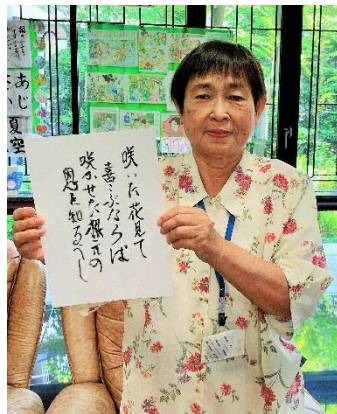 咲いた花見て
喜ぶならば
咲かせた根元の
恩を知るべし
あじ
夏空